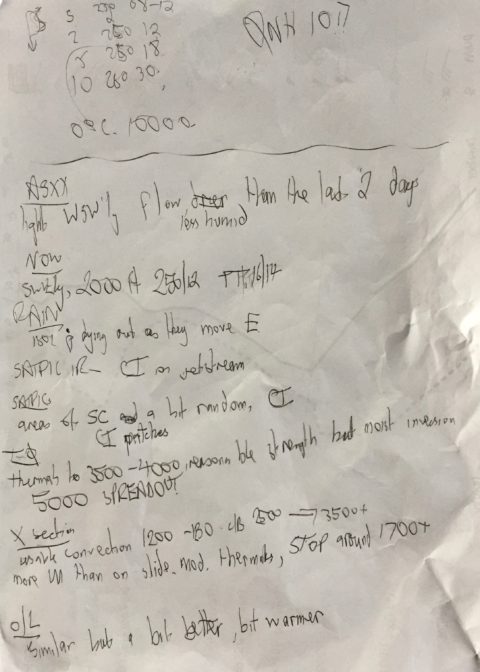 5 08-12
2 250 12
5 250 18
10 260 30
QNH 101
0°C 10000
ASXX
light WSW'ly flow, drier than the last 2 days
less humid
NOW
SW'ly, 2000 ft 250/12 16/14
RAIN
ISOL dying out as they move E
SATPIC IR - CI on jetstream
SATPIC
areas of SC a bit random, CI
CI patches
thermals to 3500 - 4000, reasonable strength but moist inversion
5000 SPREADOUT
X section
usable convection 1200 - 180 c/b 2500 → 3500+
more W than on slide. mod. thermals, STOP around 1700+
O/L
Similar but a bit better, bit warmer